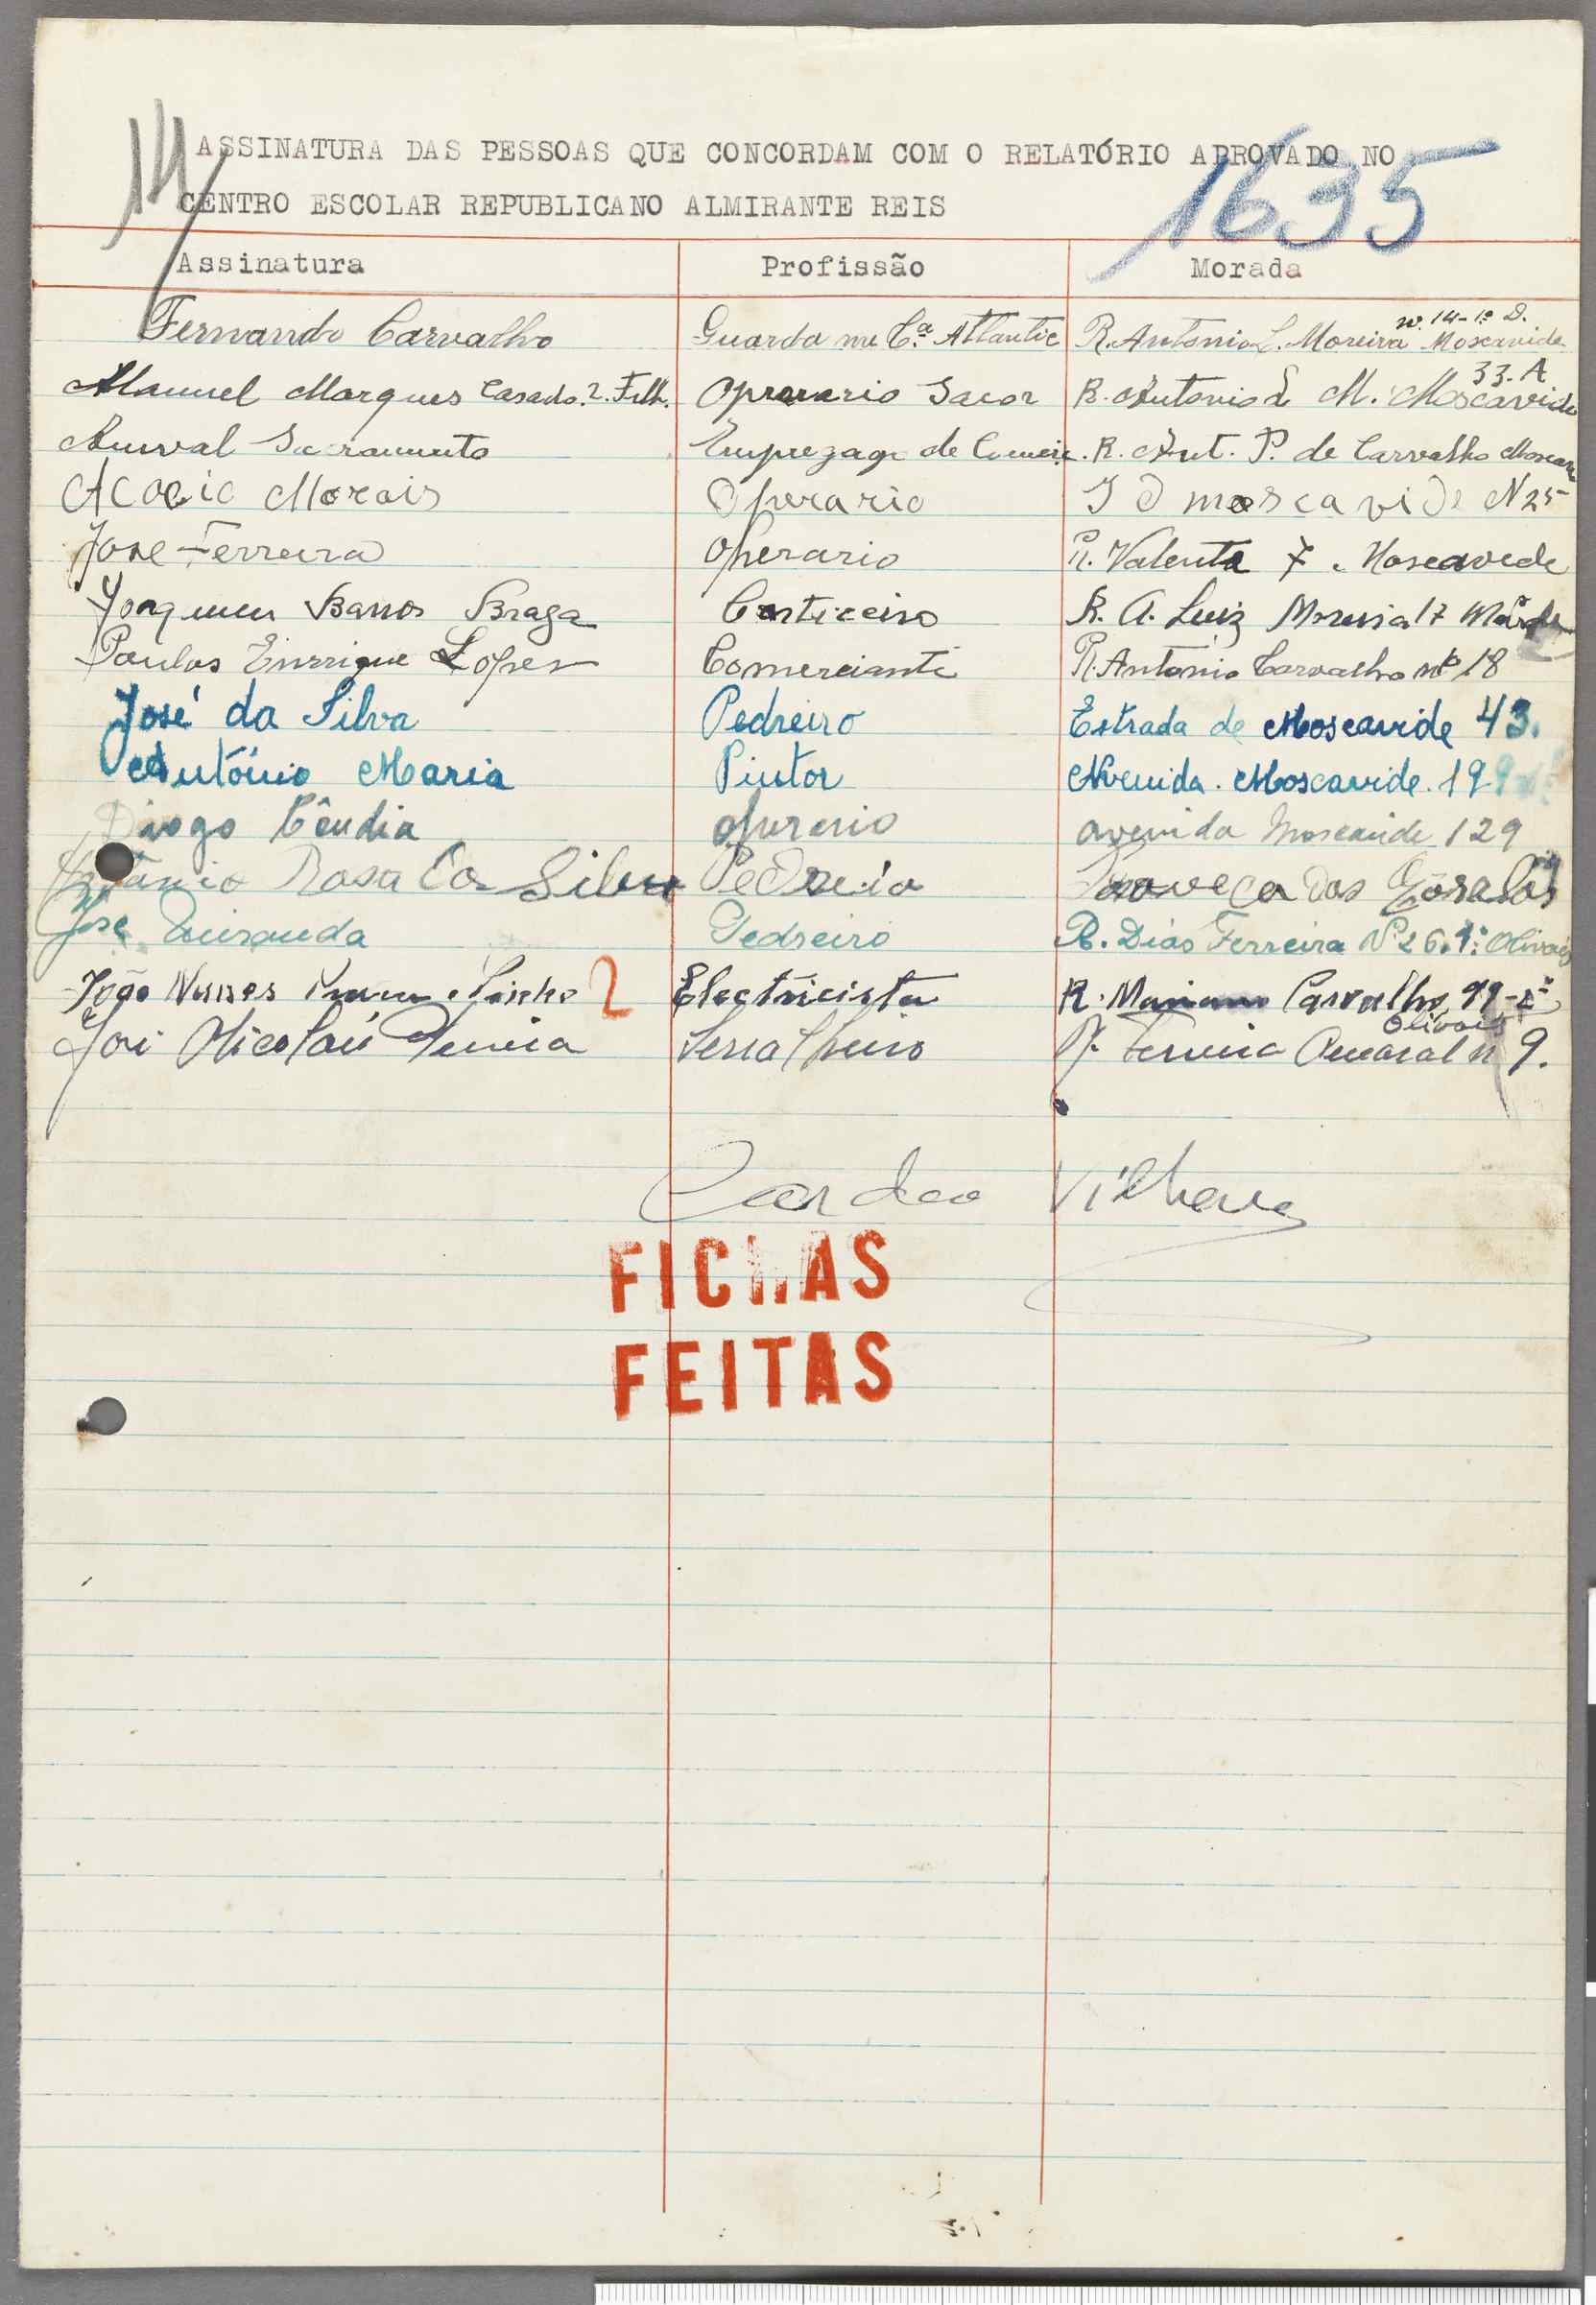 14
ASSINATURA DAS PESSOAS QUE CONCORDAM COM O RELATÓRIO APROVADO NO
CENTRO ESCOLAR REPUBLICANO ALMIRANTE REIS
1635
Assinatura Profissão Morada
Fernando Carvalho Guarda na C.ª Atlantic R. Antonio L. Moreira nº 14-1º D. Moscavide
Manuel Marques Casado. 2. Filh. Oprerario Sacor R. Antonio L M. Moscavide 33. A
Sacramento de R. Ant. P. de Carvalho
Acacio Morais Operario moscavide N 25
Jose Ferreira Operario R. Valente 7. Moscavede
Joaquim Barros Braga Corticeiro R. A. Luiz 17
Paulos Enrrique Lopes Comerciante R. Antonio Carvalho nº 18
José da Silva Pedreiro Estrada de Moscavide 43.
António Maria Pintor Avenida. Moscavide. 19
Diogo Cêndia Operario Avenida Moscavide 129
Rosa Da Silva Pedreiro Das
José Miranda Pedreiro R. Dias Ferreira Nº 26. 1º Olivais
João Nunes 2 Electricista R. Mariano Carvalho 99-2º Olivais
José Nicolau Pereira Serralheiro Amaral n 9.
Vilhena
FICHAS
FEITAS